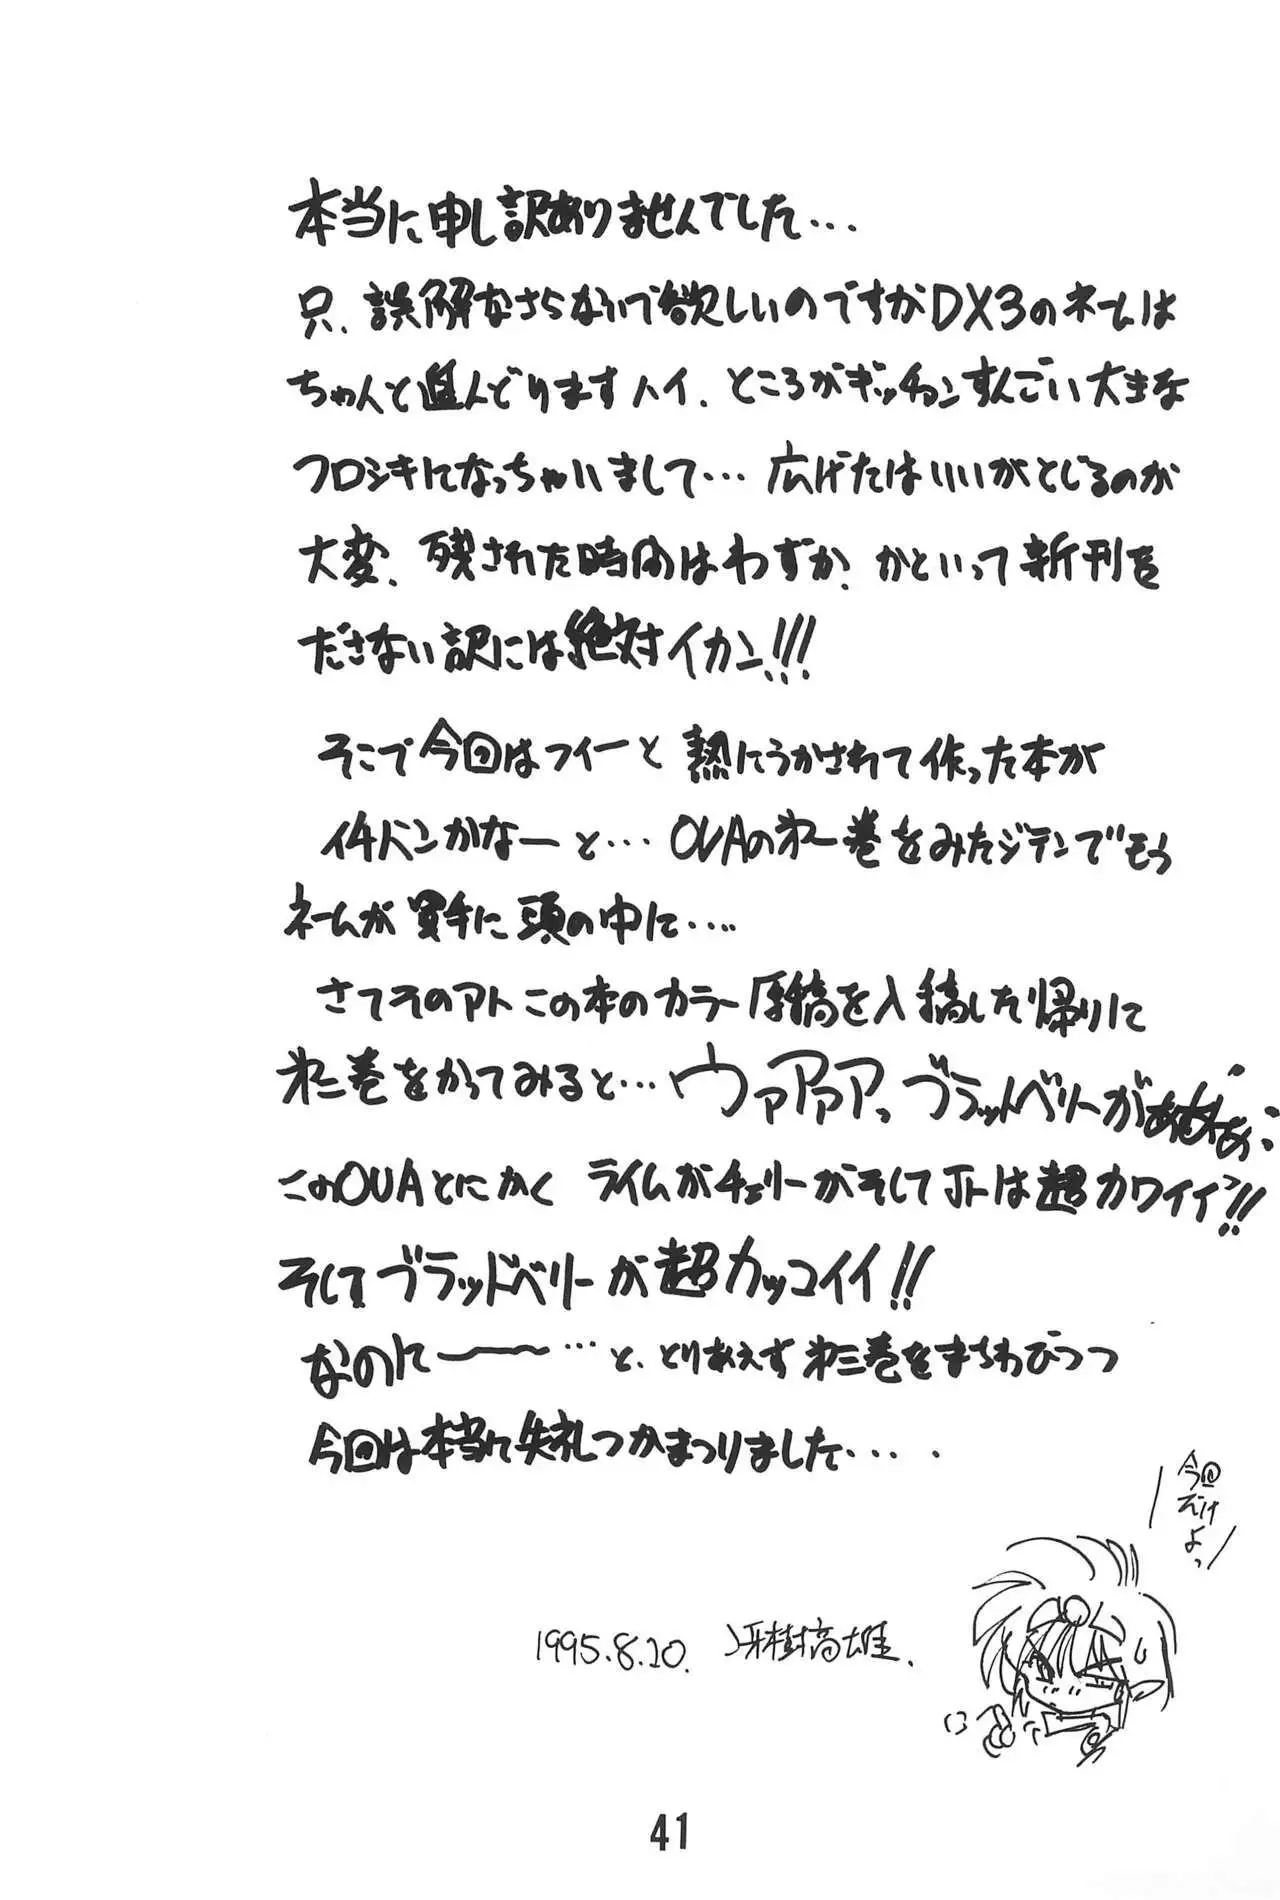 本当に申し訳ありませんでした...
只、誤解なさらないで欲しいのですがDX3のネームは
ちゃんと進んどりますハイ、ところがギッチョンすんごい大きな
フロシキになっちゃいまして... 広げたはいいがとじるのが
大変、残された時間はわずか、かといって新刊を
ださない訳には絶対イカン!!!
そこで今回はフイーと熱にうかされて作った本が
イチバンかなーと... OVAの第一巻をみたジテンでもう
ネームが勝手に頭の中に....
さてそのアトこの本のカラー原稿を入稿した帰りに
第二巻をかってみると... ウァアァアっ、ブラッドベリーが
このOVAとにかくライムがチェリーがそしてJrは超カワイイっ!!
そしてブラッドベリーが超カッコイイ!!
なのに〜〜...と、とりあえず第三巻をまちわびつつ
今回は本当に失礼つかまつりました....
今回
だけ
よっ
1995.8.20. 冴樹高雄.
41